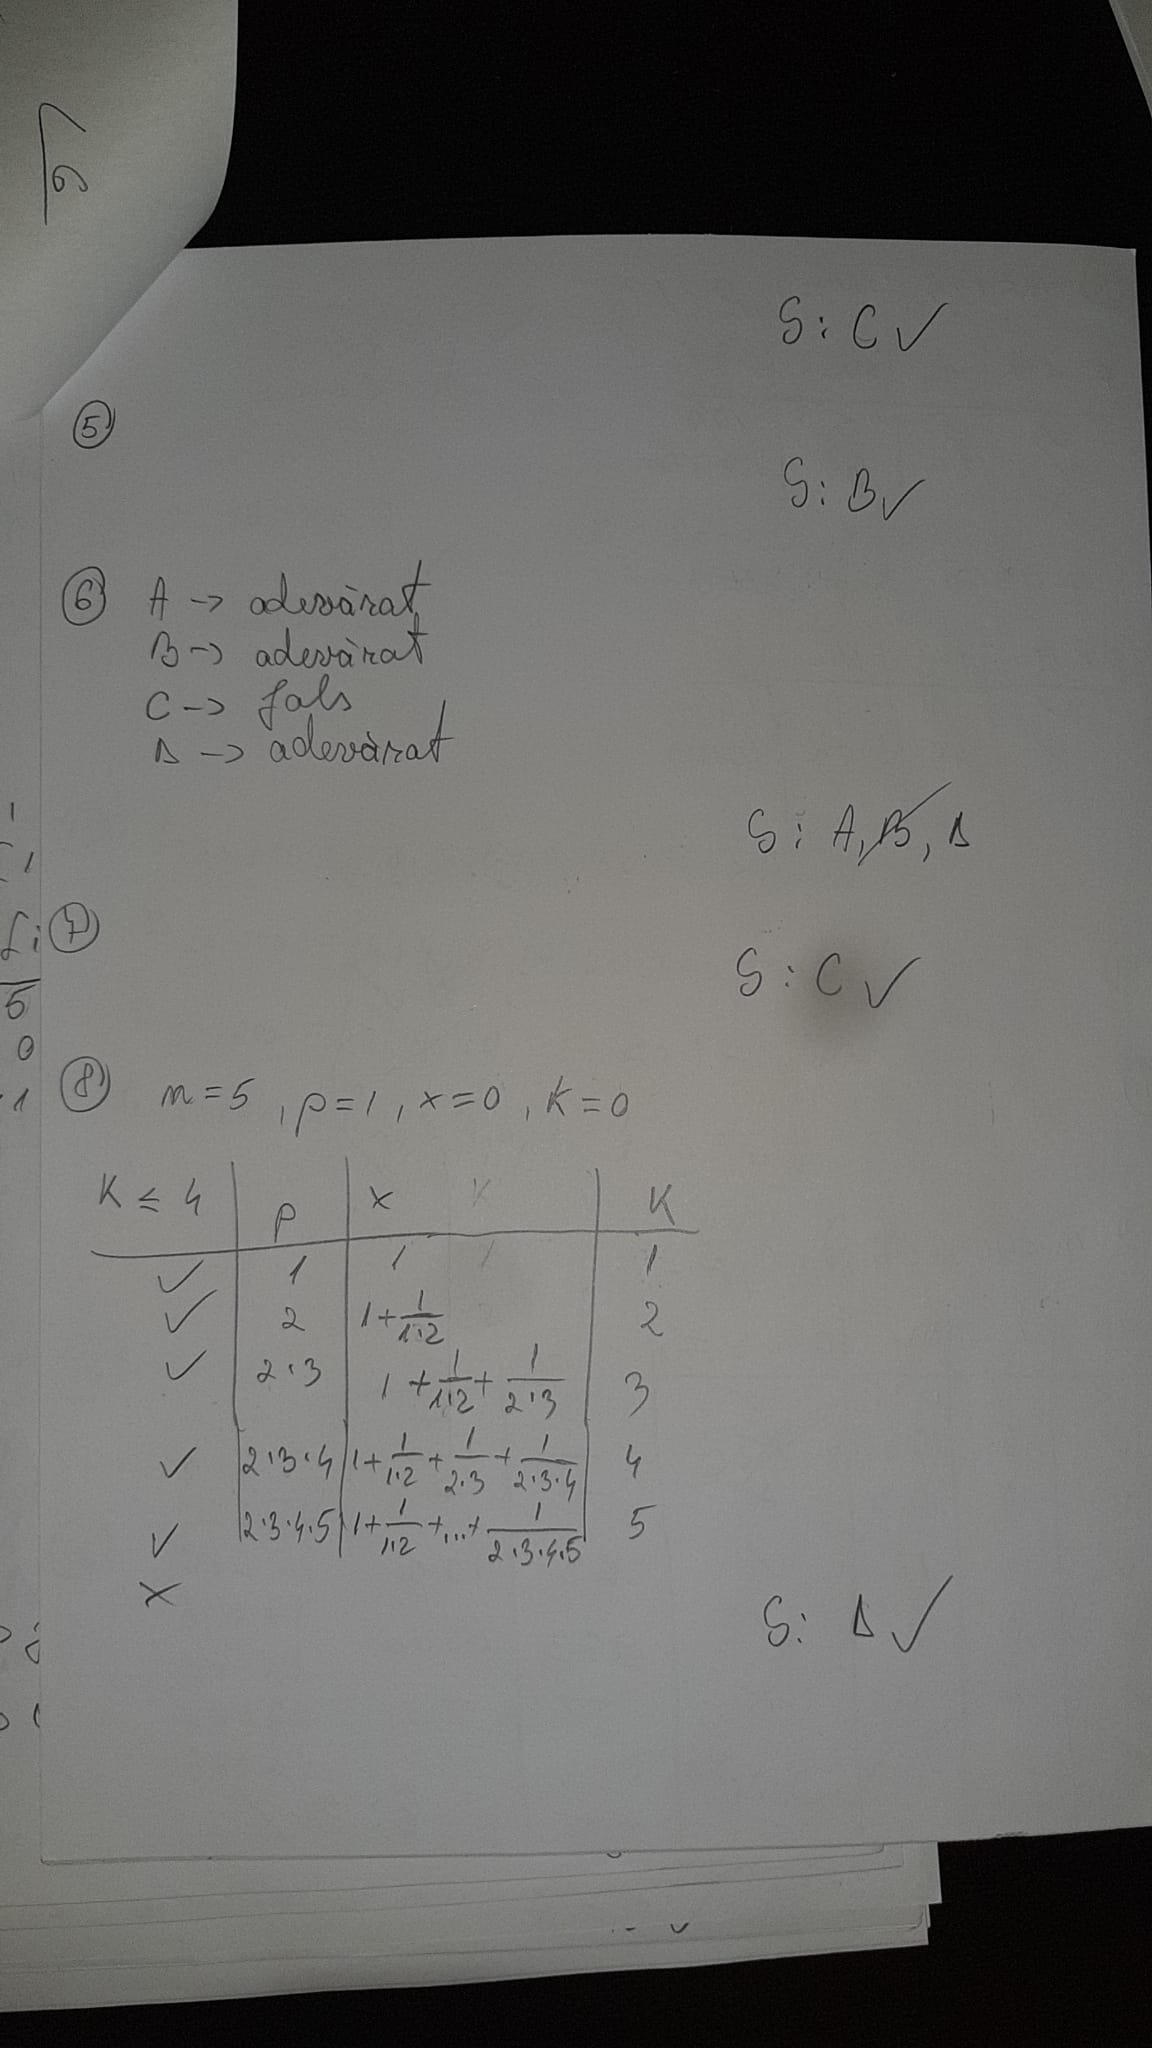 S: C ✓
5
S: B ✓
6 A -> adevărat
B -> adevărat
C -> fals
D -> adevărat
S: A, B, D
7
S: C ✓
8 n=5, p=1, x=0, K=0
K ≤ 4 | p | x | K
✓ | 1 | 1 | 1
✓ | 2 | 1+1/1·2 | 2
✓ | 2·3 | 1+1/1·2+1/2·3 | 3
✓ | 2·3·4 | 1+1/1·2+1/2·3+1/2·3·4 | 4
✓ | 2·3·4·5 | 1+1/1·2+...+1/2·3·4·5 | 5
×
S: D ✓